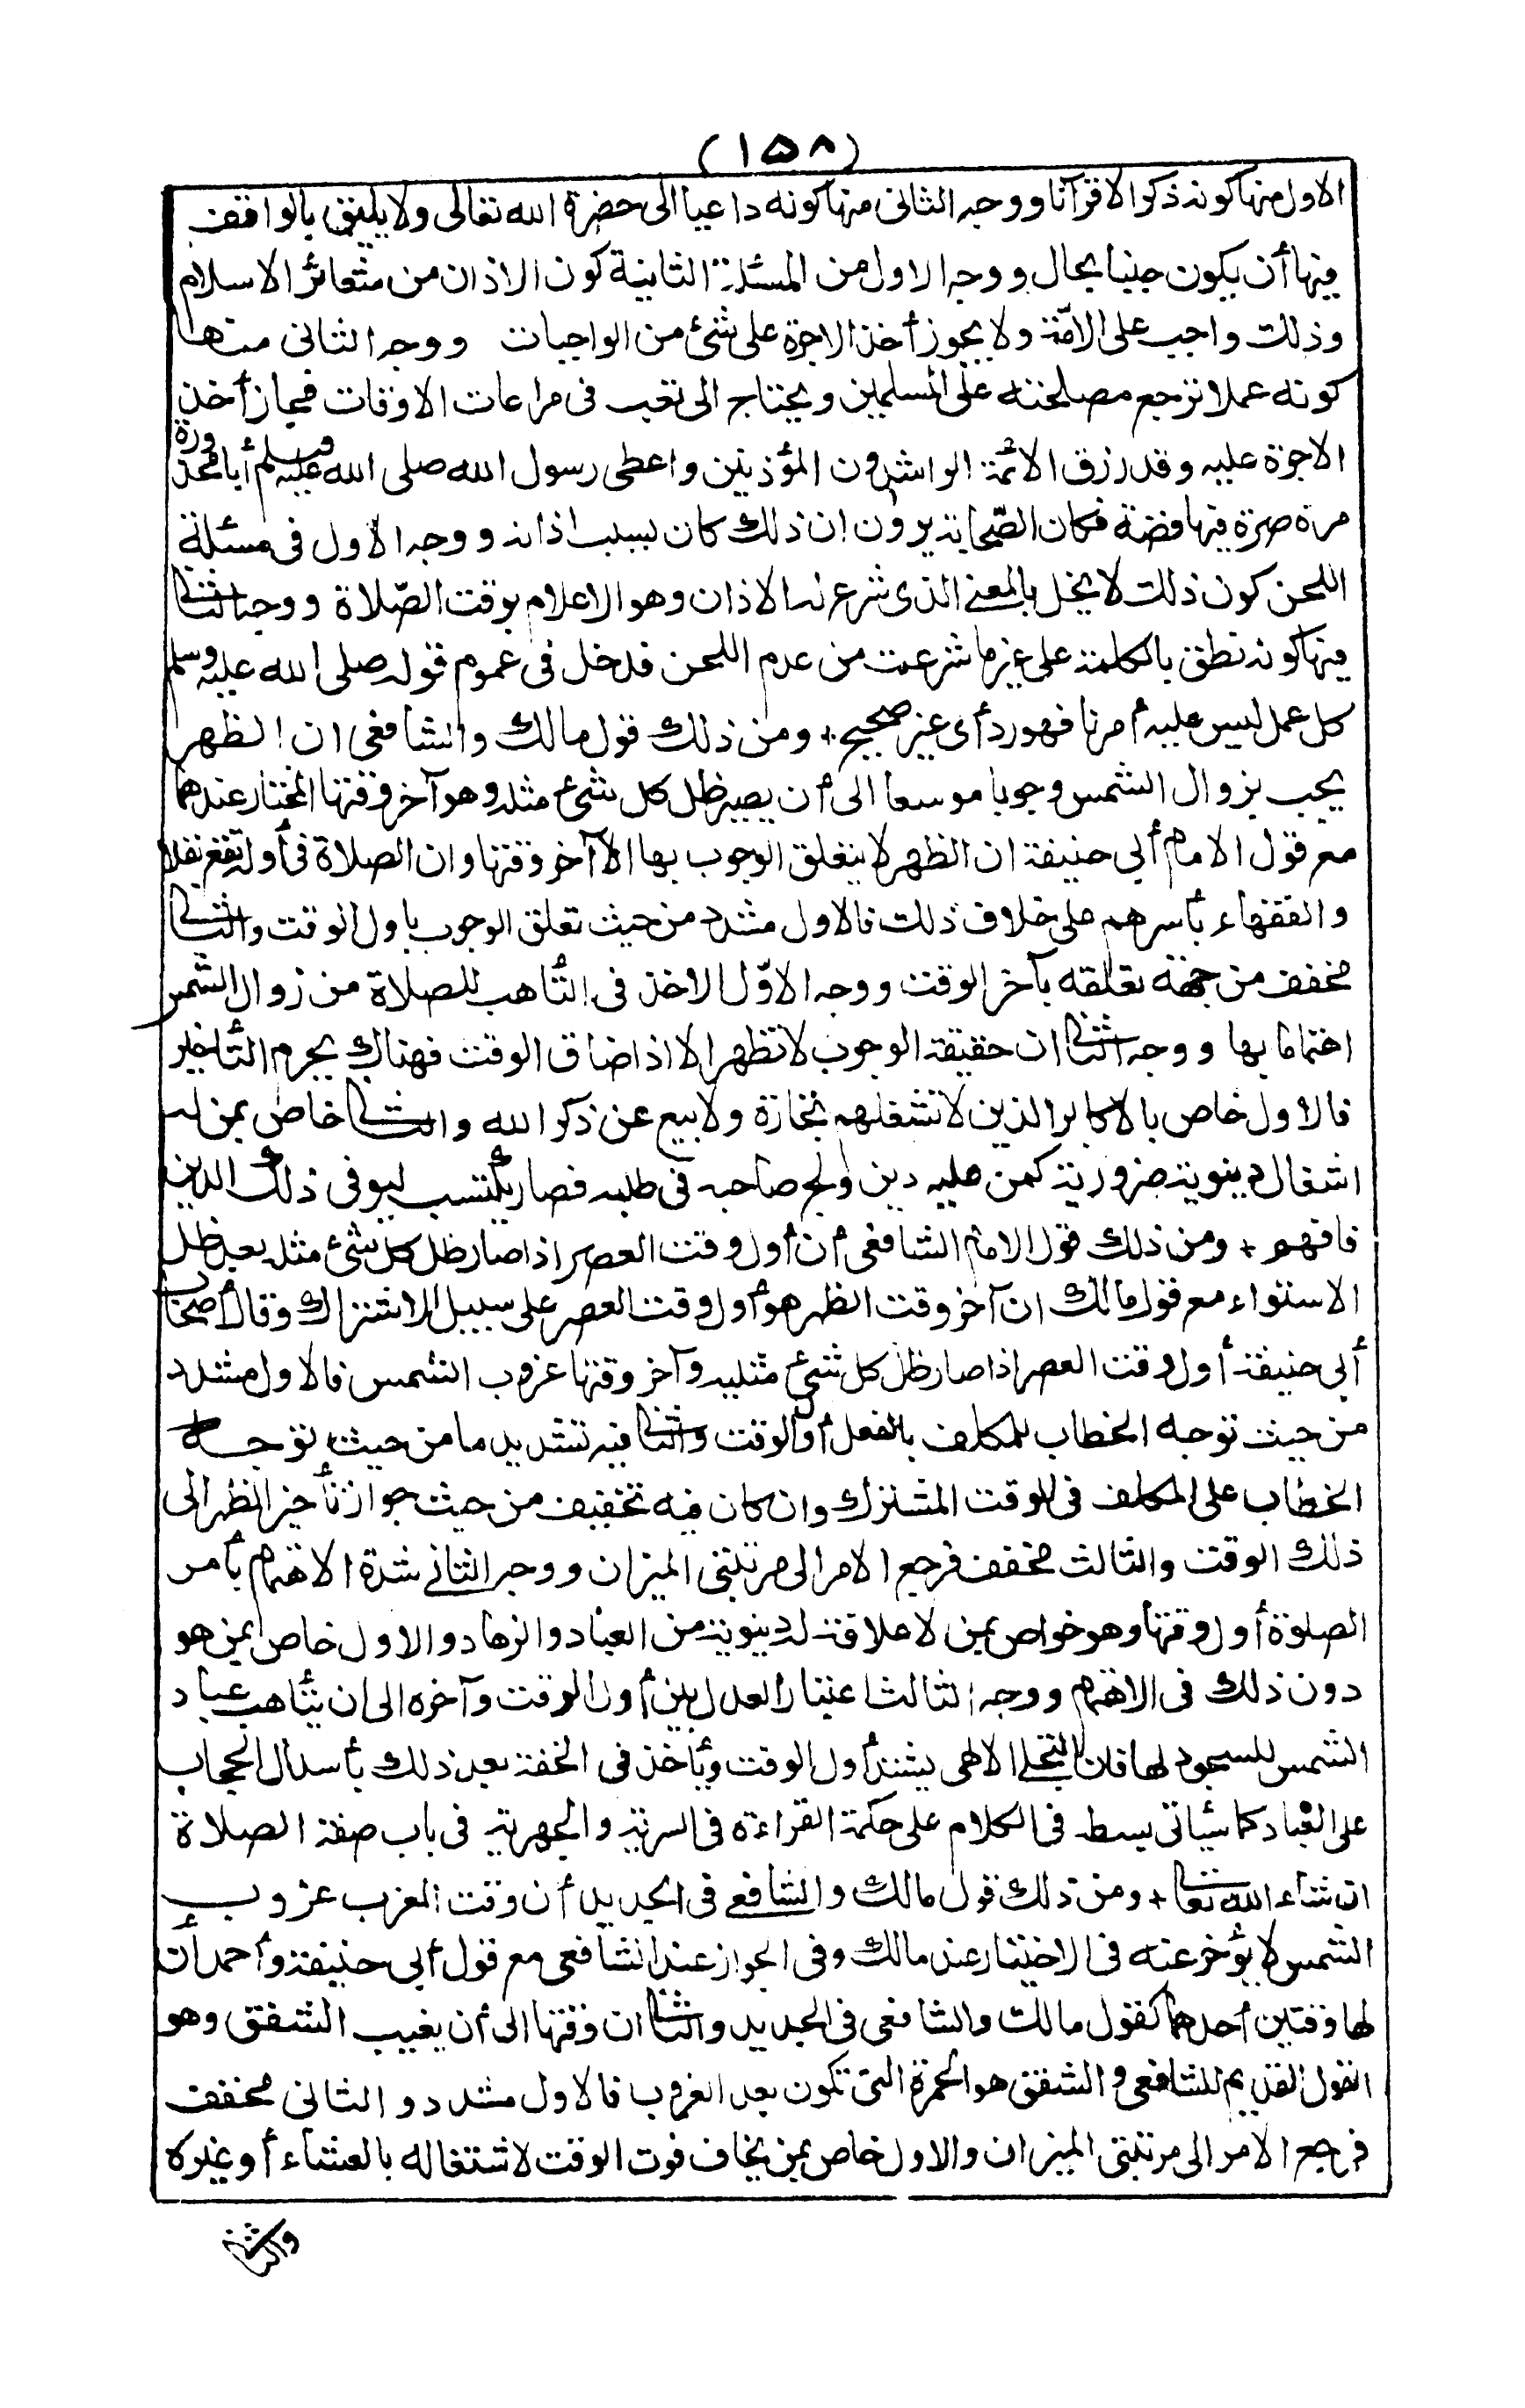 (١٥٨)
الاول منها كونه ذكرا لا قرآنا ووجه الثانى منها كونه داعيا الى حضرة الله تعالى ولا يليق بالواقف
فيها أن يكون جنبا بحال ووجه الاول من المسئلة الثانية كون الاذان من شعائر الاسلام
وذلك واجب على الامة ولا يجوز أخذ الاجرة على شئ من الواجبات ووجه الثانى منها
كونه عملا ترجع مصلحته على المسلمين ويحتاج الى تعب فى مراعات الاوقات فجاز أخذ
الاجرة عليه وقد رزق الائمة الراشدون المؤذنين واعطى رسول الله صلى الله عليه وسلم أبا محذورة
مرة صرة فيها فضة فكان الصحابة يرون ان ذلك كان بسبب اذانه ووجه الاول فى مسئلة
اللحن كون ذلك لا يخل بالمعنى الذى شرع له الاذان وهو الاعلام بوقت الصّلاة ووجه الثانى
فيها كونه نطق بالكلمة على غير ما شرعت من عدم اللحن فدخل فى عموم قوله صلى الله عليه وسلم
كل عمل ليس عليه أمرنا فهو رد أى غير صحيح + ومن ذلك قول مالك والشافعى ان الظهر
يجب بزوال الشمس وجوبا موسعا الى أن يصير ظل كل شئ مثله وهو آخر وقتها المختار عندهما
مع قول الامام أبى حنيفة ان الظهر لا يتعلق الوجوب بها الا آخر وقتها وان الصلاة فى أوله تقع نفلا
والفقهاء بأسرهم على خلاف ذلك فالاول مشدد من حيث تعلق الوجوب باول الوقت والثانى
مخفف من جهة تعلقه بآخر الوقت ووجه الاوّل الاخذ فى التأهب للصلاة من زوال الشمس
اهتماما بها ووجه الثانى ان حقيقة الوجوب لا تظهر الا اذا ضاق الوقت فهناك يحرم التأخير
فالاول خاص بالاكابر الذين لا تشغلهم تجارة ولا بيع عن ذكر الله والثانى خاص بمن له
اشغال دينوية ضرورية كمن عليه دين ولح صاحبه فى طلبه فصار يكتسب ليوفى ذلك الدين
فافهم + ومن ذلك قول الامام الشافعى أن أول وقت العصر اذا صار ظل كل شئ مثله بعد ظل
الاستواء مع قول مالك ان آخر وقت الظهر هو أول وقت العصر على سبيل الاشتراك وقال أصحاب
أبى حنيفة أول وقت العصر اذا صار ظل كل شئ مثليه وآخر وقتها غروب الشمس فالاول مشدد
من حيث توجه الخطاب للمكلف بالفعل أول الوقت والثانى فيه تشديد ما من حيث توجه
الخطاب على المكلف فى الوقت المشترك وان كان فيه تخفيف من حيث جواز تأخير الظهر الى
ذلك الوقت والثالث مخفف فرجع الامر الى مرتبتى الميزان ووجه الثانى شدة الاهتمام بأمر
الصلوة أول وقتها وهو خواص بمن لا علاقة له دينوية من العباد والزهاد والاول خاص بمن هو
دون ذلك فى الاهتمام ووجه الثالث اعتبار العدل بين أول الوقت وآخره الى ان يتأهب عباد
الشمس للسجود لها فان التجلى الالهى يشتد أول الوقت ويأخذ فى الخفة بعد ذلك بأسدال الحجاب
على العباد كما سيأتى بسط فى الكلام على حكمة القراءة فى السرية والجهرية فى باب صفة الصلاة
ان شاء الله تعالى + ومن ذلك قول مالك والشافعى فى الجديد أن وقت المغرب غروب
الشمس لا يؤخر عنه فى الاختيار عند مالك وفى الجواز عند الشافعى مع قول أبى حنيفة وأحمد أن
لها وقتين أحدهما كقول مالك والشافعى فى الجديد والثانى ان وقتها الى أن يغيب الشفق وهو
القول القديم للشافعى والشفق هو الحمرة التى تكون بعد الغروب فالاول مشدد والثانى مخفف
فرجع الامر الى مرتبتى الميزان والاول خاص بمن يخاف فوت الوقت لاشتغاله بالعشاء أو غيره
والثانى